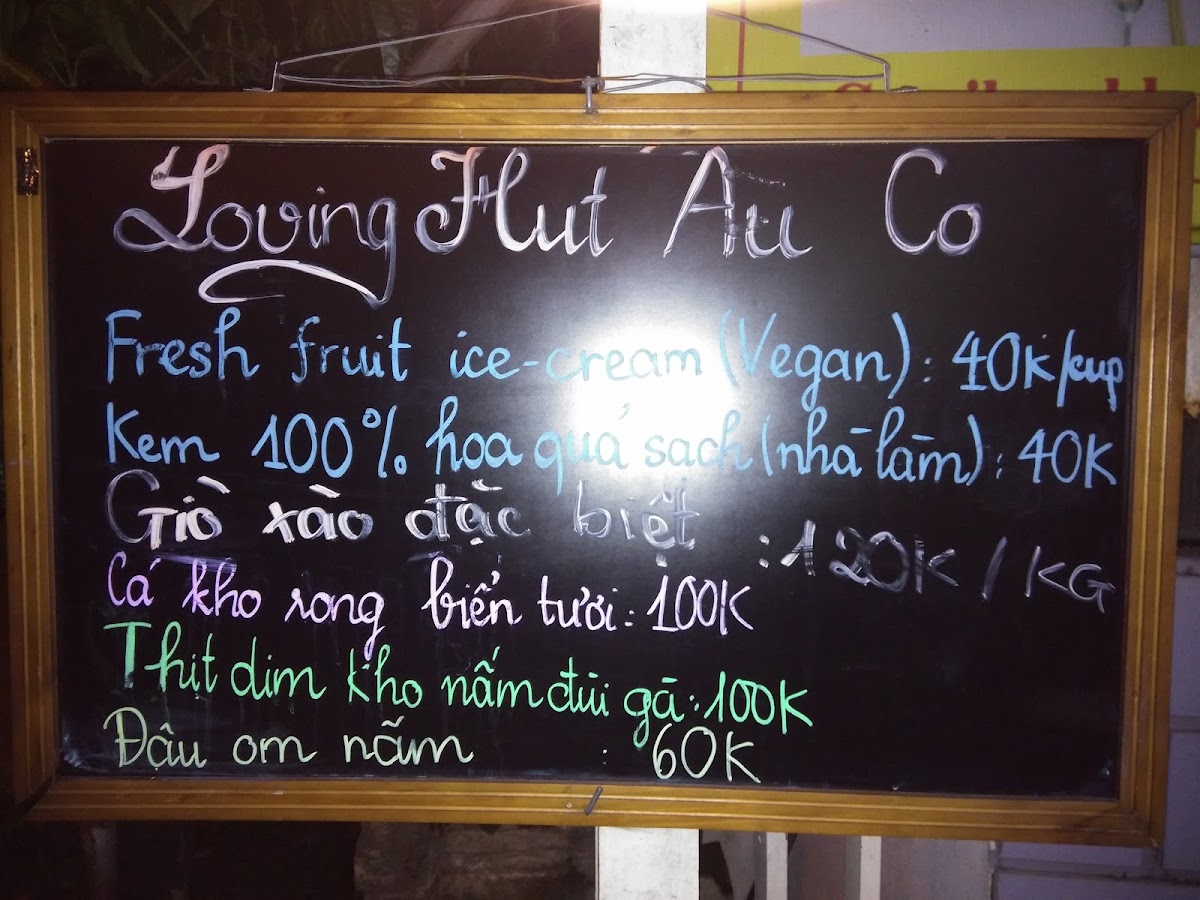 Loving Hut Âu Co
Fresh fruit ice-cream (Vegan): 40K/cup
Kem 100% hoa quả sạch (nhà làm): 40K
Giò xào đặc biệt :120K/KG
Cá kho rong biển tươi: 100K
Thịt dim kho nấm đùi gà: 100K
Đậu om nấm : 60K